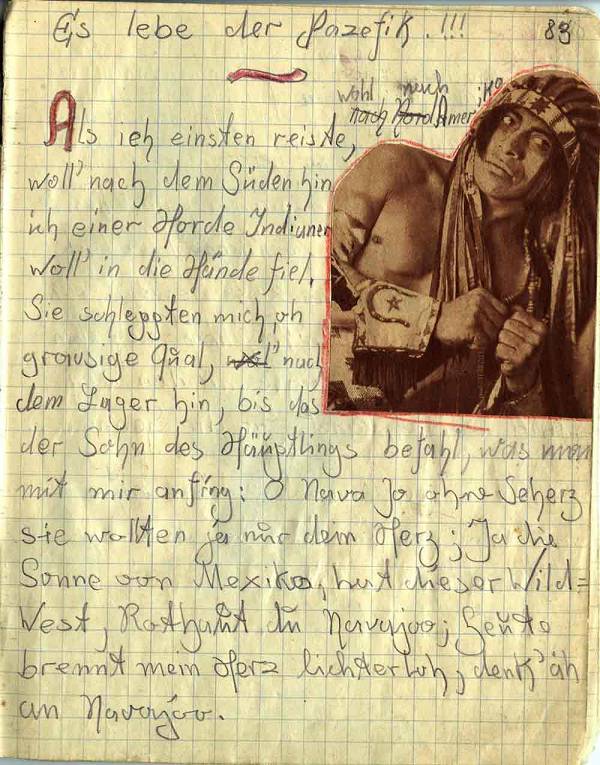 Es lebe der Pazefik.!!! 83
wohl nach
nach Nord Amerika
Als ich einsten reiste,
woll' nach dem Süden hin
ich einer Horde Indianer
woll' in die Hände fiel.
Sie schleppten mich, oh
grausige Qual, wol' nach
dem Lager hin, bis das
der Sohn des Häuptlings befahl, was man
mit mir anfing: O Nava Jo ohne Scherz
sie wollten ja nur dem Herz; Ja die
Sonne von Mexiko, hat dieser Wild=
West, Rothaut du Navajoo; Heute
brennt mein Herz lichterloh, denk' ich
an Navajoo.